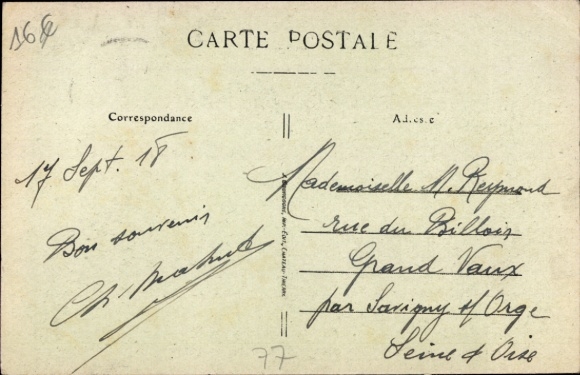 16
CARTE POSTALE
Correspondance
Adresse
17 Sept. 18
Bon souvenir
Ch.
Mademoiselle M. Reymond
rue du Billois
Grand Vaux
par Savigny s/ Orge
Seine & Oise
77